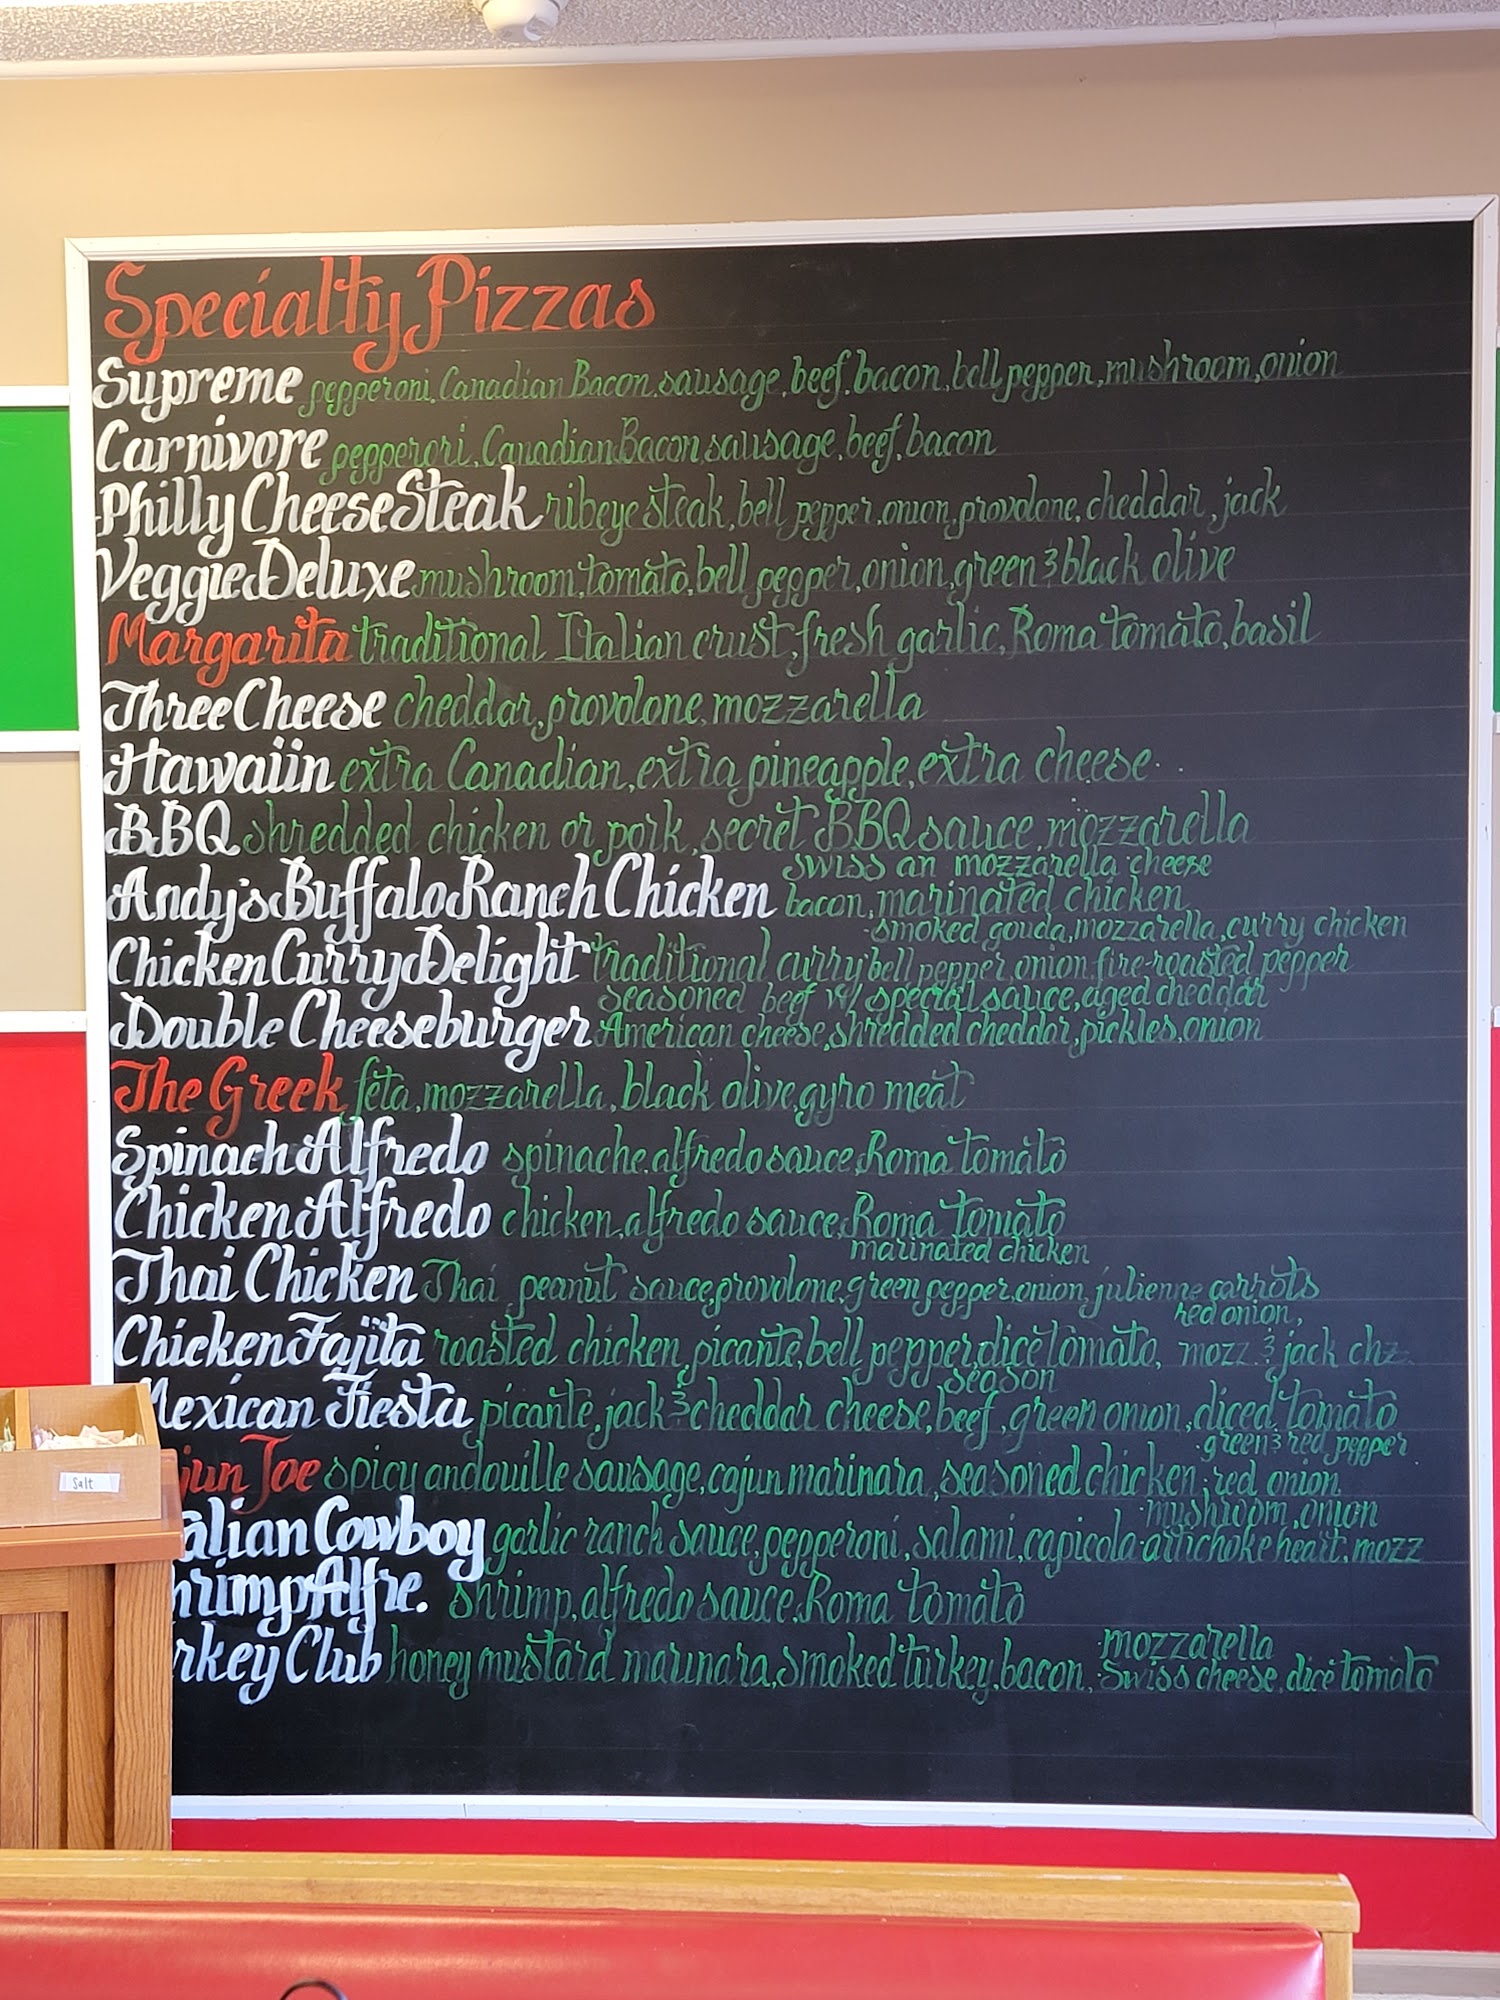 Specialty Pizzas
Supreme pepperoni, Canadian Bacon, sausage, beef, bacon, bell pepper, mushroom, onion
Carnivore pepperori, Canadian Bacon, sausage, beef, bacon
Philly Cheese Steak ribeye steak, bell pepper, onion, provolone, cheddar, jack
Veggie Deluxe mushroom, tomato, bell pepper, onion, green & black olive
Margarita traditional Italian crust, fresh garlic, Roma tomato, basil
Three Cheese cheddar, provolone, mozzarella
Hawaiin extra Canadian, extra pineapple, extra cheese
BBQ shredded chicken or pork, secret BBQ sauce, mozzarella
swiss an mozzarella cheese
Andy's Buffalo Ranch Chicken bacon, marinated chicken
smoked gouda, mozzarella, curry chicken
Chicken Curry Delight traditional curry bell pepper, onion, fire-roasted pepper
seasoned beef w/ special sauce, aged cheddar
Double Cheeseburger American cheese, shredded cheddar, pickles, onion
The Greek feta, mozzarella, black olive, gyro meat
Spinach Alfredo spinache, alfredo sauce, Roma tomato
Chicken Alfredo chicken, alfredo sauce, Roma tomato
marinated chicken
Thai Chicken Thai peanut sauce, provolone, green pepper, onion, julienne carrots
red onion,
Chicken Fajita roasted chicken, picante, bell pepper, dice tomato, mozz & jack chz
season
Mexican Fiesta picante, jack & cheddar cheese, beef, green onion, diced tomato
green & red pepper
jun Joe spicy andouille sausage, cajun marinara, seasoned chicken, red onion
mushroom, onion
alian Cowboy garlic ranch sauce, pepperoni, salami, capicola artichoke heart, mozz
hrimp Alfre. shrimp, alfredo sauce, Roma tomato
mozzarella
rkey Club honey mustard marinara, smoked turkey, bacon, Swiss cheese, dice tomato
Salt